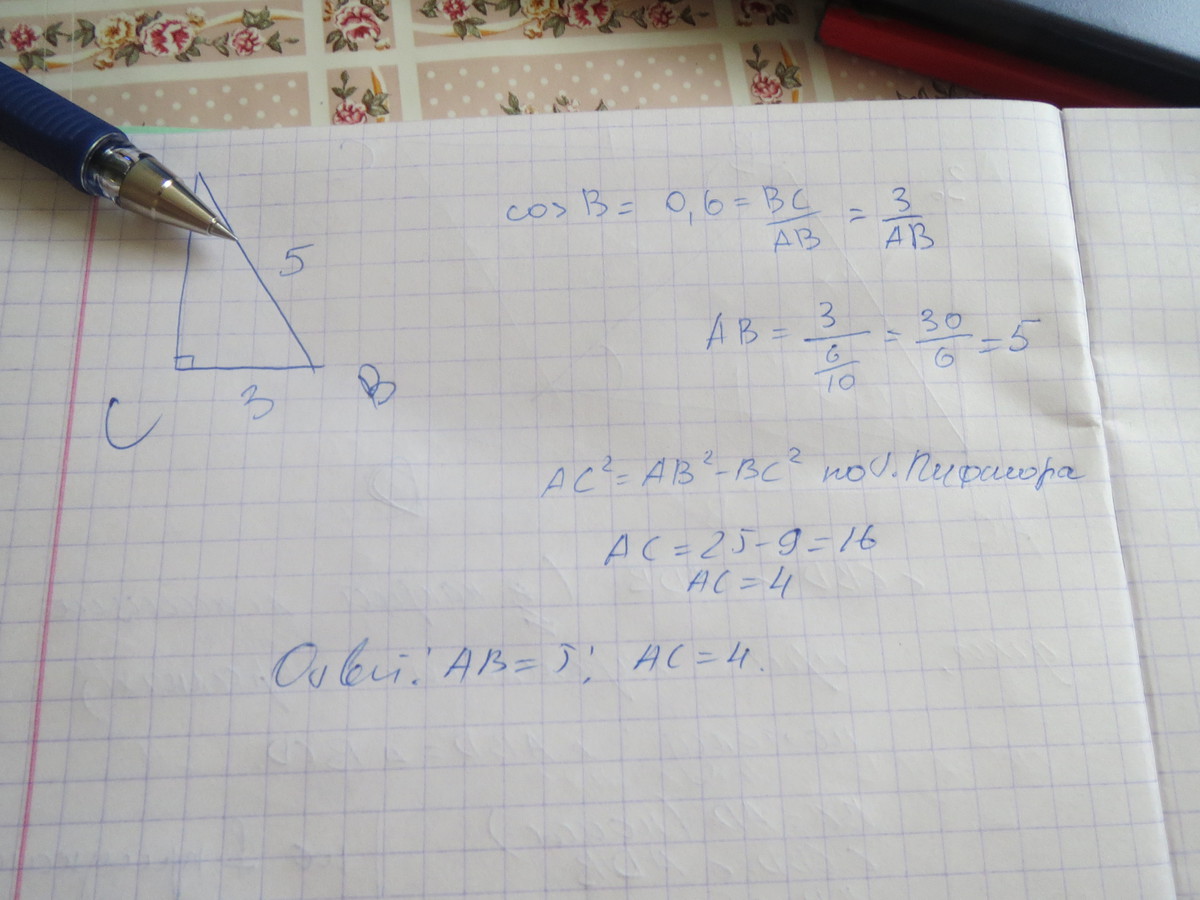 5
C 3 B
cos B = 0,6 = BC/AB = 3/AB
AB = 3/(6/10) = 30/6 = 5
AC² = AB² - BC² по т. Пифагора
AC = 25 - 9 = 16
AC = 4
Ответ: AB = 5; AC = 4.